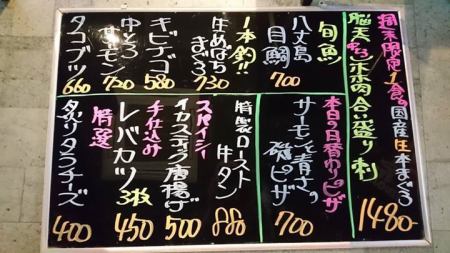 週末限定1食の国産生本まぐろ
脳天中とろ/ホホ肉合い盛り刺
1480-
旬魚
八丈島
目鯛
700
1本釣!!
生めばち
まぐろ
730
キビナゴ
580
中とろ
サーモン
720
タコブツ
660
本日の日替わりピザ
サーモンと青さの
磯ピザ
700
特製ロースト
牛タン
880
スパイシー
イカスティック唐揚げ
500
手仕込み
レバカツ
3枚
450
特選
炙りタラチーズ
400